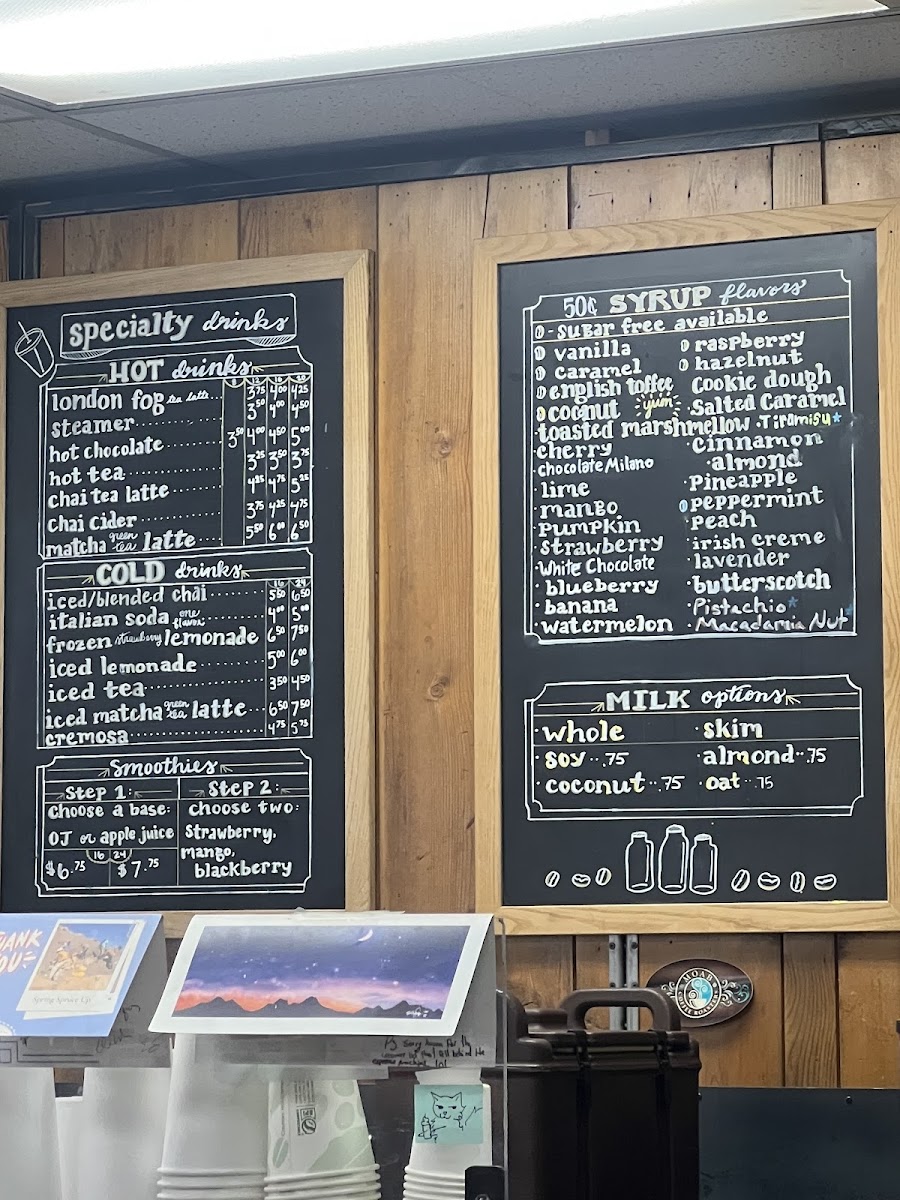 specialty drinks
HOT drinks
8 12 16 20
london fog tea latte... 3.75 4.00 4.25
steamer 3.50 4.00 4.50
hot chocolate 3.50 4.00 4.50 5.00
hot tea 3.25 3.50 3.75
chai tea latte 4.25 4.75 5.25
chai cider 3.75 4.25 4.75
matcha green tea latte 5.50 6.00 6.50
COLD drinks
16 24
iced/blended chai 5.50 6.50
italian soda one flavor 4.00 5.00
frozen strawberry lemonade 6.50 7.50
iced lemonade 5.00 6.00
iced tea 3.50 4.50
iced matcha green tea latte 6.50 7.50
cremosa 4.75 5.75
Smoothies
Step 1: Step 2:
Choose a base: choose two:
OJ or apple juice Strawberry,
16 24 mango,
$6.75 $7.75 blackberry
50¢ SYRUP flavors
- sugar free available
vanilla raspberry
caramel hazelnut
english toffee cookie dough
coconut yum Salted Caramel
toasted marshmellow Tiramisu*
cherry cinnamon
chocolate Milano almond
lime Pineapple
mango peppermint
pumpkin peach
strawberry irish creme
White Chocolate lavender
blueberry butterscotch
banana Pistachio*
watermelon Macadamia Nut*
MILK options
whole skim
soy .75 almond .75
coconut .75 oat .75
THANK
YOU
MOAB
COFFEE ROASTERS